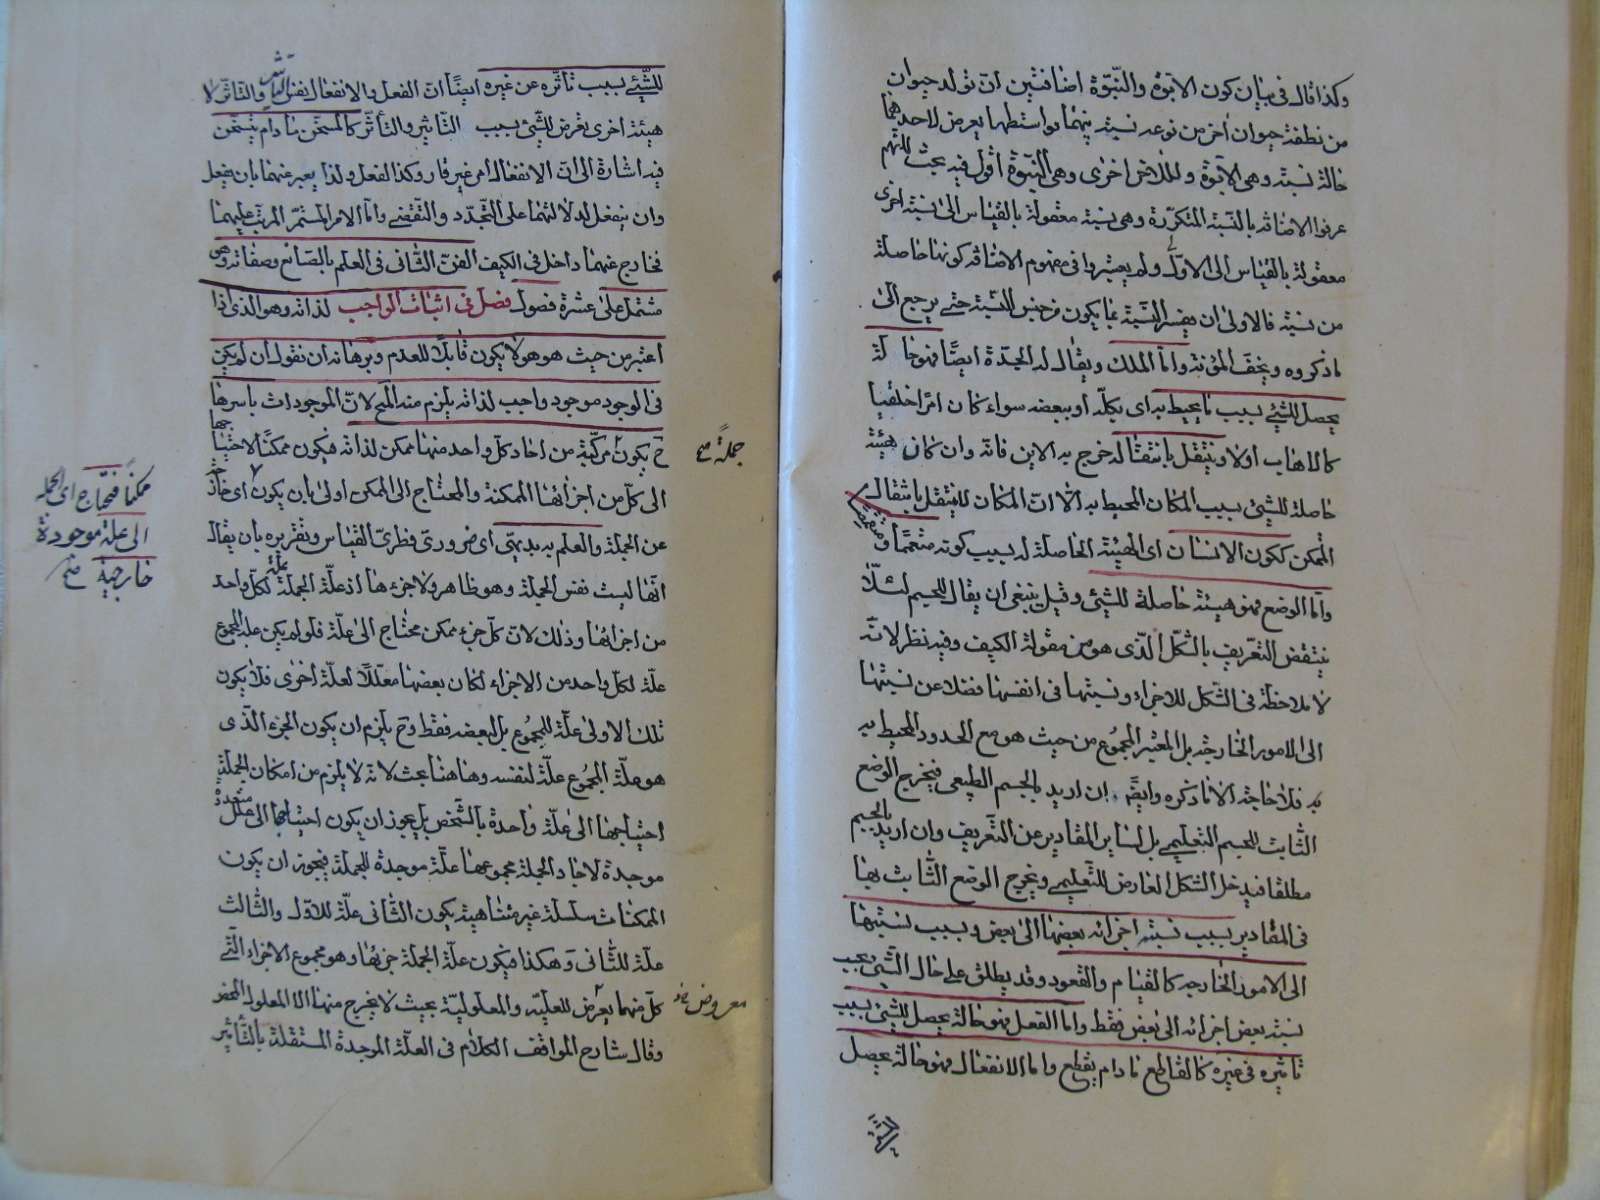 وكذا قال فى بيان كون الابوّة والنّبوّة اضافتين انّ تولد حيوان
من نطفة حيوان اٰخر من نوعه نسبة بينهما بواسطتها يعرض لاحدهما
حالة نسبية وهى الابوّة وللاٰخر اخرى وهى البنوّة اقول فيه بحث لانّهم
عرفوا الاضافة بالنّسبة المتكرّرة وهى نسبة معقولة بالقياس الى نسبة اخرى
معقولة بالقياس الى الاولى ولم يعتبروا فى مفهوم الاضافة كونها حاصلة
من نسبة فالاولى ان يفسر النّسبة بما يكون من جنس النّسبة حتى يرجع الى
ما ذكروه ويخفّ المؤنة وامّا الملك ويقال له الجدة ايضًا فهو حالة
يحصل للشّئ بسبب ما يحيط به اى بكلّه او ببعضه سواء كان امرًا خلقيا
كالاهاب اولا وينتقل بانتقاله خرج به الاين فانّه وان كان هيئة
حاصلة للشّئ بسبب المكان المحيط به الّا انّ المكان لا ينتقل بانتقال
المتمكن ككون الانسان اى الهيئة الحاصلة له بسبب كونه متعمّمًا ومتقمّصا
وامّا الوضع فهو هيئة حاصلة للشّئ وقيل ينبغى ان يقال للجسم لئلّا
ينتقض التعريف بالشّكل الّذى هو من مقولة الكيف وفيه نظر لانّه
لا ملاحظة فى الشّكل للاجزاء ونسبتها فى انفسها فضلا عن نسبتها
الى الامور الخارجة بل المعتبر المجموع من حيث هو مع الحدود المحيط به
به فلا حاجة الا ما ذكره وايضً ان اريد بالجسم الطبيعى فيخرج الوضع
الثّابت للجسم التعليمى بل لساير المقادير عن التّعريف وان اريد بالجسم
مطلقا فيدخل الشّكل العارض للتّعليمى ويخرج الوضع الثّابت بها
فى المقادير بسبب نسبة اجزائه بعضها الى بعض وبسبب نسبتها
الى الامور الخارجه كالقيام والقعود وقد يطلق على حال الشّئ بحسب
نسبة بعض اجزائه الى بعض فقط وامّا الفعل فهو حالة يحصل للشّئ بسبب
تاثيره فى غيره كالقاطع ما دام يقطع وامّا الانفعال فهو حالة يحصل
للشّئ بسبب تأثّره عن غيره ايضًا انّ الفعل والانفعال نفس التأثير والتأثّر لا
هيئة اخرى يعرض للشّئ بسبب التّأثير والتأثّر كالمسخّن ما دام يتسخّن
فيه اشارة الى انّ الانفعال امر غير قار وكذا الفعل ولذا يعبر عنهما بان يفعل
وان ينفعل لدلالتهما على التجدّد والتقضّى وامّا الامر المستمرّ المرتّب عليهما
فخارج عنهما داخل فى الكيف الفنّ الثّانى فى العلم بالصّانع وصفاته وهو
مشتمل على عشرة فصول فصل فى اثبات الواجب لذاته وهو الذى اذا
اعتبر من حيث هو هو لا يكون قابلًا للعدم وبرهانه ان نقول ان لم يكن
فى الوجود موجود واجب لذاته يلزم منه المح لانّ الموجودات باسرها
ح يكون مركّبة من اٰحاد كل واحد منها ممكن لذاته فيكون ممكنًا لاحتياجها
الى كلّ من اجزائها الممكنة والمحتاج الى الممكن اولى بان يكون اى خارجة
عن الجملة والعلم به بديهىّ اى ضرورى فطرىّ القياس وتقريره بان يقال
انّها ليست نفس الجملة وهو ظاهر ولا جزءها اذ علّة الجملة علّة لكل واحد
من اجزائها وذلك لانّ كلّ جزء ممكن محتاج الى علّة فلو لم يكن علة المجموع
علّة لكلّ واحد من الاجزاء لكان بعضها معلّلًا لعلّة اخرى فلا يكون
تلك الاولى علّة للمجموع بل لبعضه فقط وح يلزم ان يكون الجزء الّذى
هو علّة المجموع علّة لنفسه وهاهنا بحث لانه لا يلزم من امكان الجملة
احتياجها الى علّة واحدة بالشّخص بل يجوز ان يكون احتياجها الى علل متعددة
موجدة لاٰحاد الجملة مجموعها علّة موجدة للجملة فيجوز ان يكون
الممكنات سلسلة غير متناهية يكون الثّانى علّة للاوّل والثالث
علّة للثّانى وهكذا فيكون علّة الجملة جزئها وهو مجموع الاجزاء الّتى
كلّ منها يعرض للعلّية والمعلوليّة بحيث لا يخرج منها الا المعلول المحض
وقال شارح المواقف الكلام فى العلّة الموجدة المستقلة بالتّأثير
جملةً صح
ممكنا فتحتاج اى الجملة
الى علة موجودة
خارجية صح
معروض خ